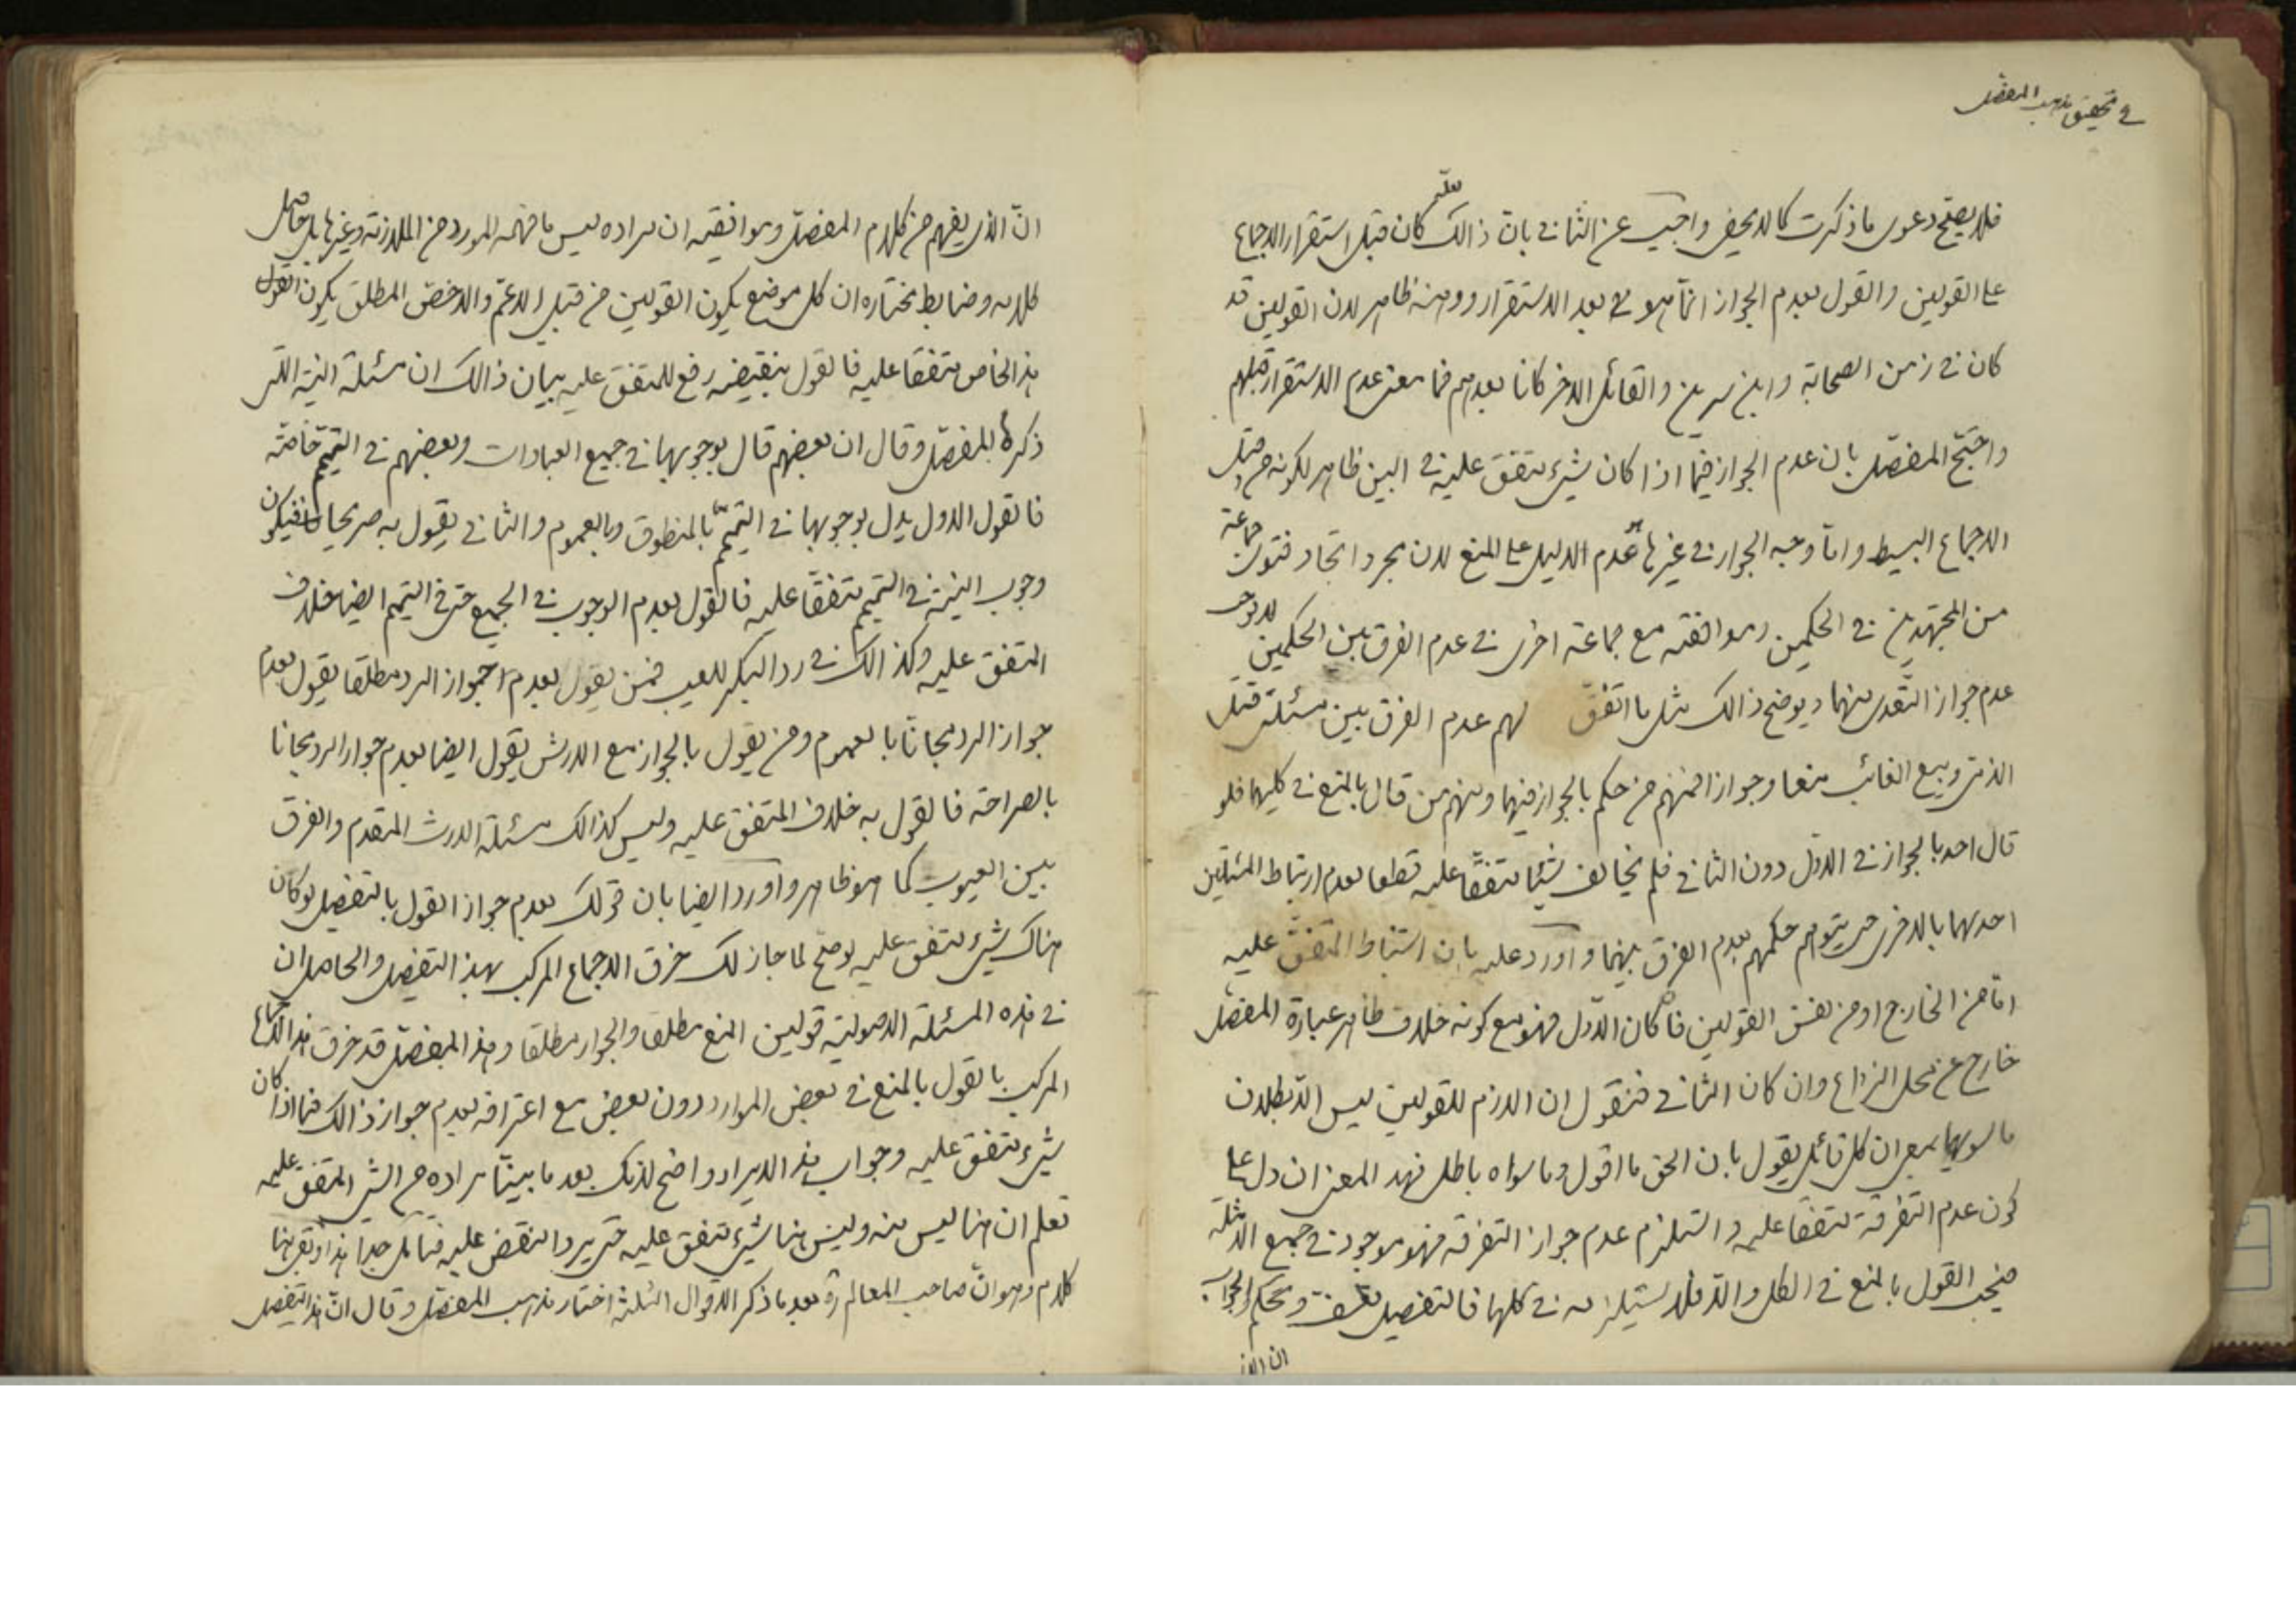 في تحقيق مذهب المفصل
فلا يصح دعوى ما ذكرت كما لا يخفى واجيب عن الثاني بانّ ذالك لعلّه كان قبل استقرار الاجماع
على القولين والقول بعدم الجواز انّما هو لا بعد الاستقرار ووهنه ظاهر لان القولين قد
كان في زمن الصحابة وابن سيرين والقائل الاخر كانا بعدهم فما معنى عدم الاستقرار قبلهم
واحتجّ المفصّل بان عدم الجواز فيما اذا كان شيء متفق عليه في البين ظاهر لكونه من قبيل
الاجماع البسيط وامّا وجه الجواز في غيرها هو عدم الدليل على المنع لان مجرد اتحاد فتوى جماعة
من المجتهدين في الحكمين وموافقته مع جماعة اخرى في عدم الفرق بين الحكمين لا يوجب
عدم جواز التّعدى منهما ويوضح ذالك مثل ما اتّفق لهم عدم الفرق بين مسئلتى قتل
الذمى وبيع الغائب منعا وجوازا فمنهم من حكم بالجواز فيهما ومنهم من قال بالمنع في كليهما فلو
قال احد بالجواز في الاول دون الثاني فلم يخالف شيئا متفقا عليه قطعا بعدم ارتباط المسئلتين
احدهما بالاخرى حتى يتوهم حكمهم بعدم الفرق بينهما واورد عليه بان استنباط المتفق عليه
امّا من الخارج او من نفس القولين فان كان الاوّل فهو مع كونه خلاف ظاهر عبارة المفصل
خارج عن محل النزاع وان كان الثاني فنقول ان اللازم للقولين ليس الّا بطلان
ما سويهما بمعنى ان كل قائل يقول بان الحق ما اقول وما سواه باطل فهذ المعنى ان دل على
كون عدم التفرقة متفقا عليه واستلزم عدم جواز التفرقة فهو موجود في جميع الامثلة
فيجب القول بالمنع في الكل والّا فلا يستلزمه في كلها فالتفصيل تعسف وتحكم والجواب
ان الذى
انّ الذى يفهم من كلام المفصّل وموافقيه ان مراده ليس ما فهمه المورد من الملازمة وغيرها بل حاصل
كلامه وضابط مختاره ان كل موضع يكون القولين من قبيل الاعمّ والاخصّ المطلق يكون القول
بهذا الخاص متفقا عليه فالقول بنقيضه رفع للمتفق عليه بيان ذالك ان مسئلة النية التى
ذكرها المفصّل وقال ان بعضهم قال بوجوبها في جميع العبادات وبعضهم في التيمّم خاصّة
فالقول الاول يدل بوجوبها في التيمّم بالمنطوق وبالعموم والثاني يقول به صريحا فيكون
وجوب النية في التيمم متفقا عليه فالقول بعدم الوجوب في الجميع حتى في التيمم ايضا خلاف
المتفق عليه وكذالك في رد البكر للعيب فمن يقول بعدم جواز الرد مطلقا يقول بعدم
جواز الرد مجانا بالعموم ومن يقول بالجواز مع الارش يقول ايضا بعدم جواز الرد مجانا
بالصراحة فالقول به خلاف المتفق عليه وليس كذالك مسئلة الارث المتقدم والفرق
بين العيوب كما هو ظاهر واورد ايضا بان قولك بعدم جواز القول بالتفصيل لو كان
هناك شيء متفق عليه لو صح لما جاز لك خرق الاجماع المركب بهذ التفصيل والحاصل ان
في هذه المسئلة الاصولية قولين المنع مطلقا والجواز مطلقا وهذ المفصّل قد خرق هذ الاجماع
المركب بالقول بالمنع في بعض الموارد دون بعض مع اعترافه بعدم جواز ذالك فيما اذا كان
شيء متفق عليه وجواب هذ الايراد واضح لانك بعد ما بينّا مراده من الشى المتفق عليه
تعلم ان هنا ليس منه وليس هنا شيء متفق عليه حتى يرد النقض عليه فتامّل جدا هذا وبقى هنا
كلام وهو انّ صاحب المعالم ره بعد ما ذكر الاقوال الثلثة اختار مذهب المفصّل وقال انّ هذ التفصيل